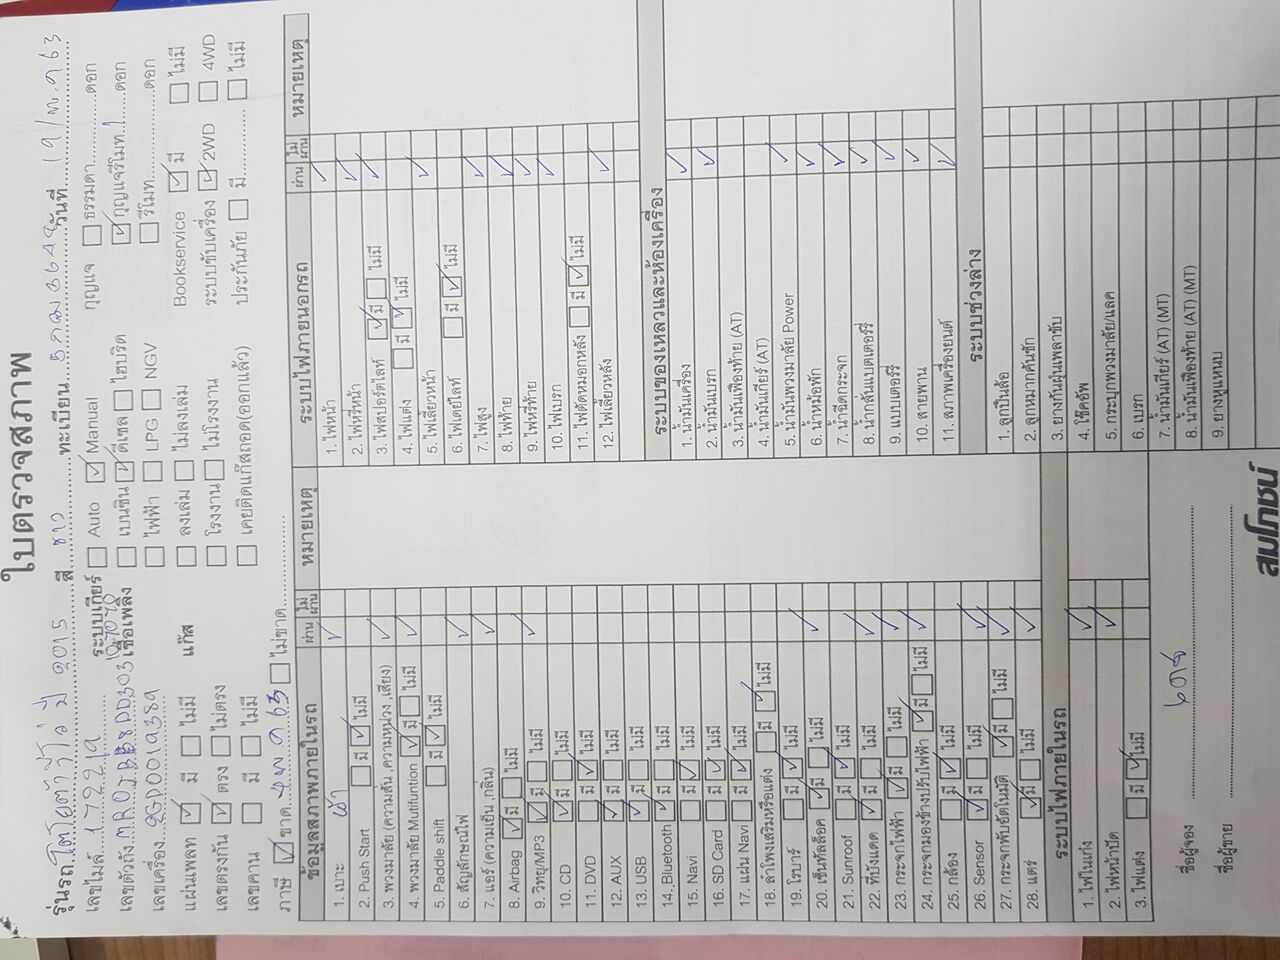 ใบตรวจสภาพ
รุ่นรถ โตโยต้ารีโว่ ปี 2015 สี ขาว ทะเบียน วันที่ 19/พ.ค 63
เลขไมล์ ระบบเกียร์ Auto Manual กุญแจ ธรรมดา ดอก
เลขตัวถัง เชื้อเพลิง เบนซิน ดีเซล ไฮบริด กุญแจรีโมท 1 ดอก
เลขเครื่อง ไฟฟ้า LPG NGV รีโมท ดอก
แผ่นเพลท มี ไม่มี แก๊ส ลงเล่ม ไม่ลงเล่ม Bookservice มี ไม่มี
เลขตรงกัน ตรง ไม่ตรง โรงงาน ไม่โรงงาน ระบบขับเครื่อง 2WD 4WD
เลขคาน มี ไม่มี เคยติดแก๊สถอด(ออกแล้ว) ประกันภัย มี ไม่มี
ภาษี ขาด ไม่ขาด
ข้อมูลสภาพภายในรถ ผ่าน ไม่ผ่าน หมายเหตุ
1. เบาะ
2. Push Start มี ไม่มี
3. พวงมาลัย (ความสั่น ,ความหน่วง ,เสียง)
4. พวงมาลัย Mutifuntion มี ไม่มี
5. Paddle shift มี ไม่มี
6. สัญลักษณ์ไฟ
7. แอร์ (ความเย็น ,กลิ่น)
8. Airbag มี ไม่มี
9. วิทยุ/MP3 มี ไม่มี
10. CD มี ไม่มี
11. DVD มี ไม่มี
12. AUX มี ไม่มี
13. USB มี ไม่มี
14. Bluetooth มี ไม่มี
15. Navi มี ไม่มี
16. SD Card มี ไม่มี
17. แผ่น Navi มี ไม่มี
18. ลำโพงเสริมหรือแต่ง มี ไม่มี
19. โรบาร์ มี ไม่มี
20. เซ็นทัลล็อค มี ไม่มี
21. Sunroof มี ไม่มี
22. ที่บังแดด มี ไม่มี
23. กระจกไฟฟ้า มี ไม่มี
24. กระจกมองข้างปรับไฟฟ้า มี ไม่มี
25. กล้อง มี ไม่มี
26. Sensor มี ไม่มี
27. กระจกพับอัตโนมัติ มี ไม่มี
28. แตร์ มี ไม่มี
ระบบไฟภายในรถ
1. ไฟในเก๋ง
2. ไฟหน้าปัด
3. ไฟแต่ง มี ไม่มี
ชื่อผู้จอง
ชื่อผู้ขาย
ระบบไฟภายนอกรถ ผ่าน ไม่ผ่าน หมายเหตุ
1. ไฟหน้า
2. ไฟหรี่หน้า
3. ไฟสปอร์ตไลท์ มี ไม่มี
4. ไฟแต่ง มี ไม่มี
5. ไฟเลี้ยวหน้า
6. ไฟเดย์ไลท์ มี ไม่มี
7. ไฟสูง
8. ไฟท้าย
9. ไฟหรี่ท้าย
10. ไฟเบรก
11. ไฟตัดหมอกหลัง มี ไม่มี
12. ไฟเลี้ยวหลัง
ระบบของเหลวและห้องเครื่อง
1. น้ำมันเครื่อง
2. น้ำมันเบรก
3. น้ำมันเฟืองท้าย (AT)
4. น้ำมันเกียร์ (AT)
5. น้ำมันพวงมาลัย Power
6. น้ำหม้อพัก
7. น้ำฉีดกระจก
8. น้ำกลั่นแบตเตอร์รี่
9. แบบเตอร์รี่
10. สายพาน
11. สภาพเครื่องยนต์
ระบบช่วงล่าง
1. ลูกปืนล้อ
2. ลูกหมากคันชัก
3. ยางกันฝุ่นเพลาขับ
4. โช๊คอัพ
5. กระปุกพวงมาลัย/แลค
6. เบรก
7. น้ำมันเกียร์ (AT) (MT)
8. น้ำมันเฟืองท้าย (AT) (MT)
9. ยางหูแหนบ
สมโภชน์